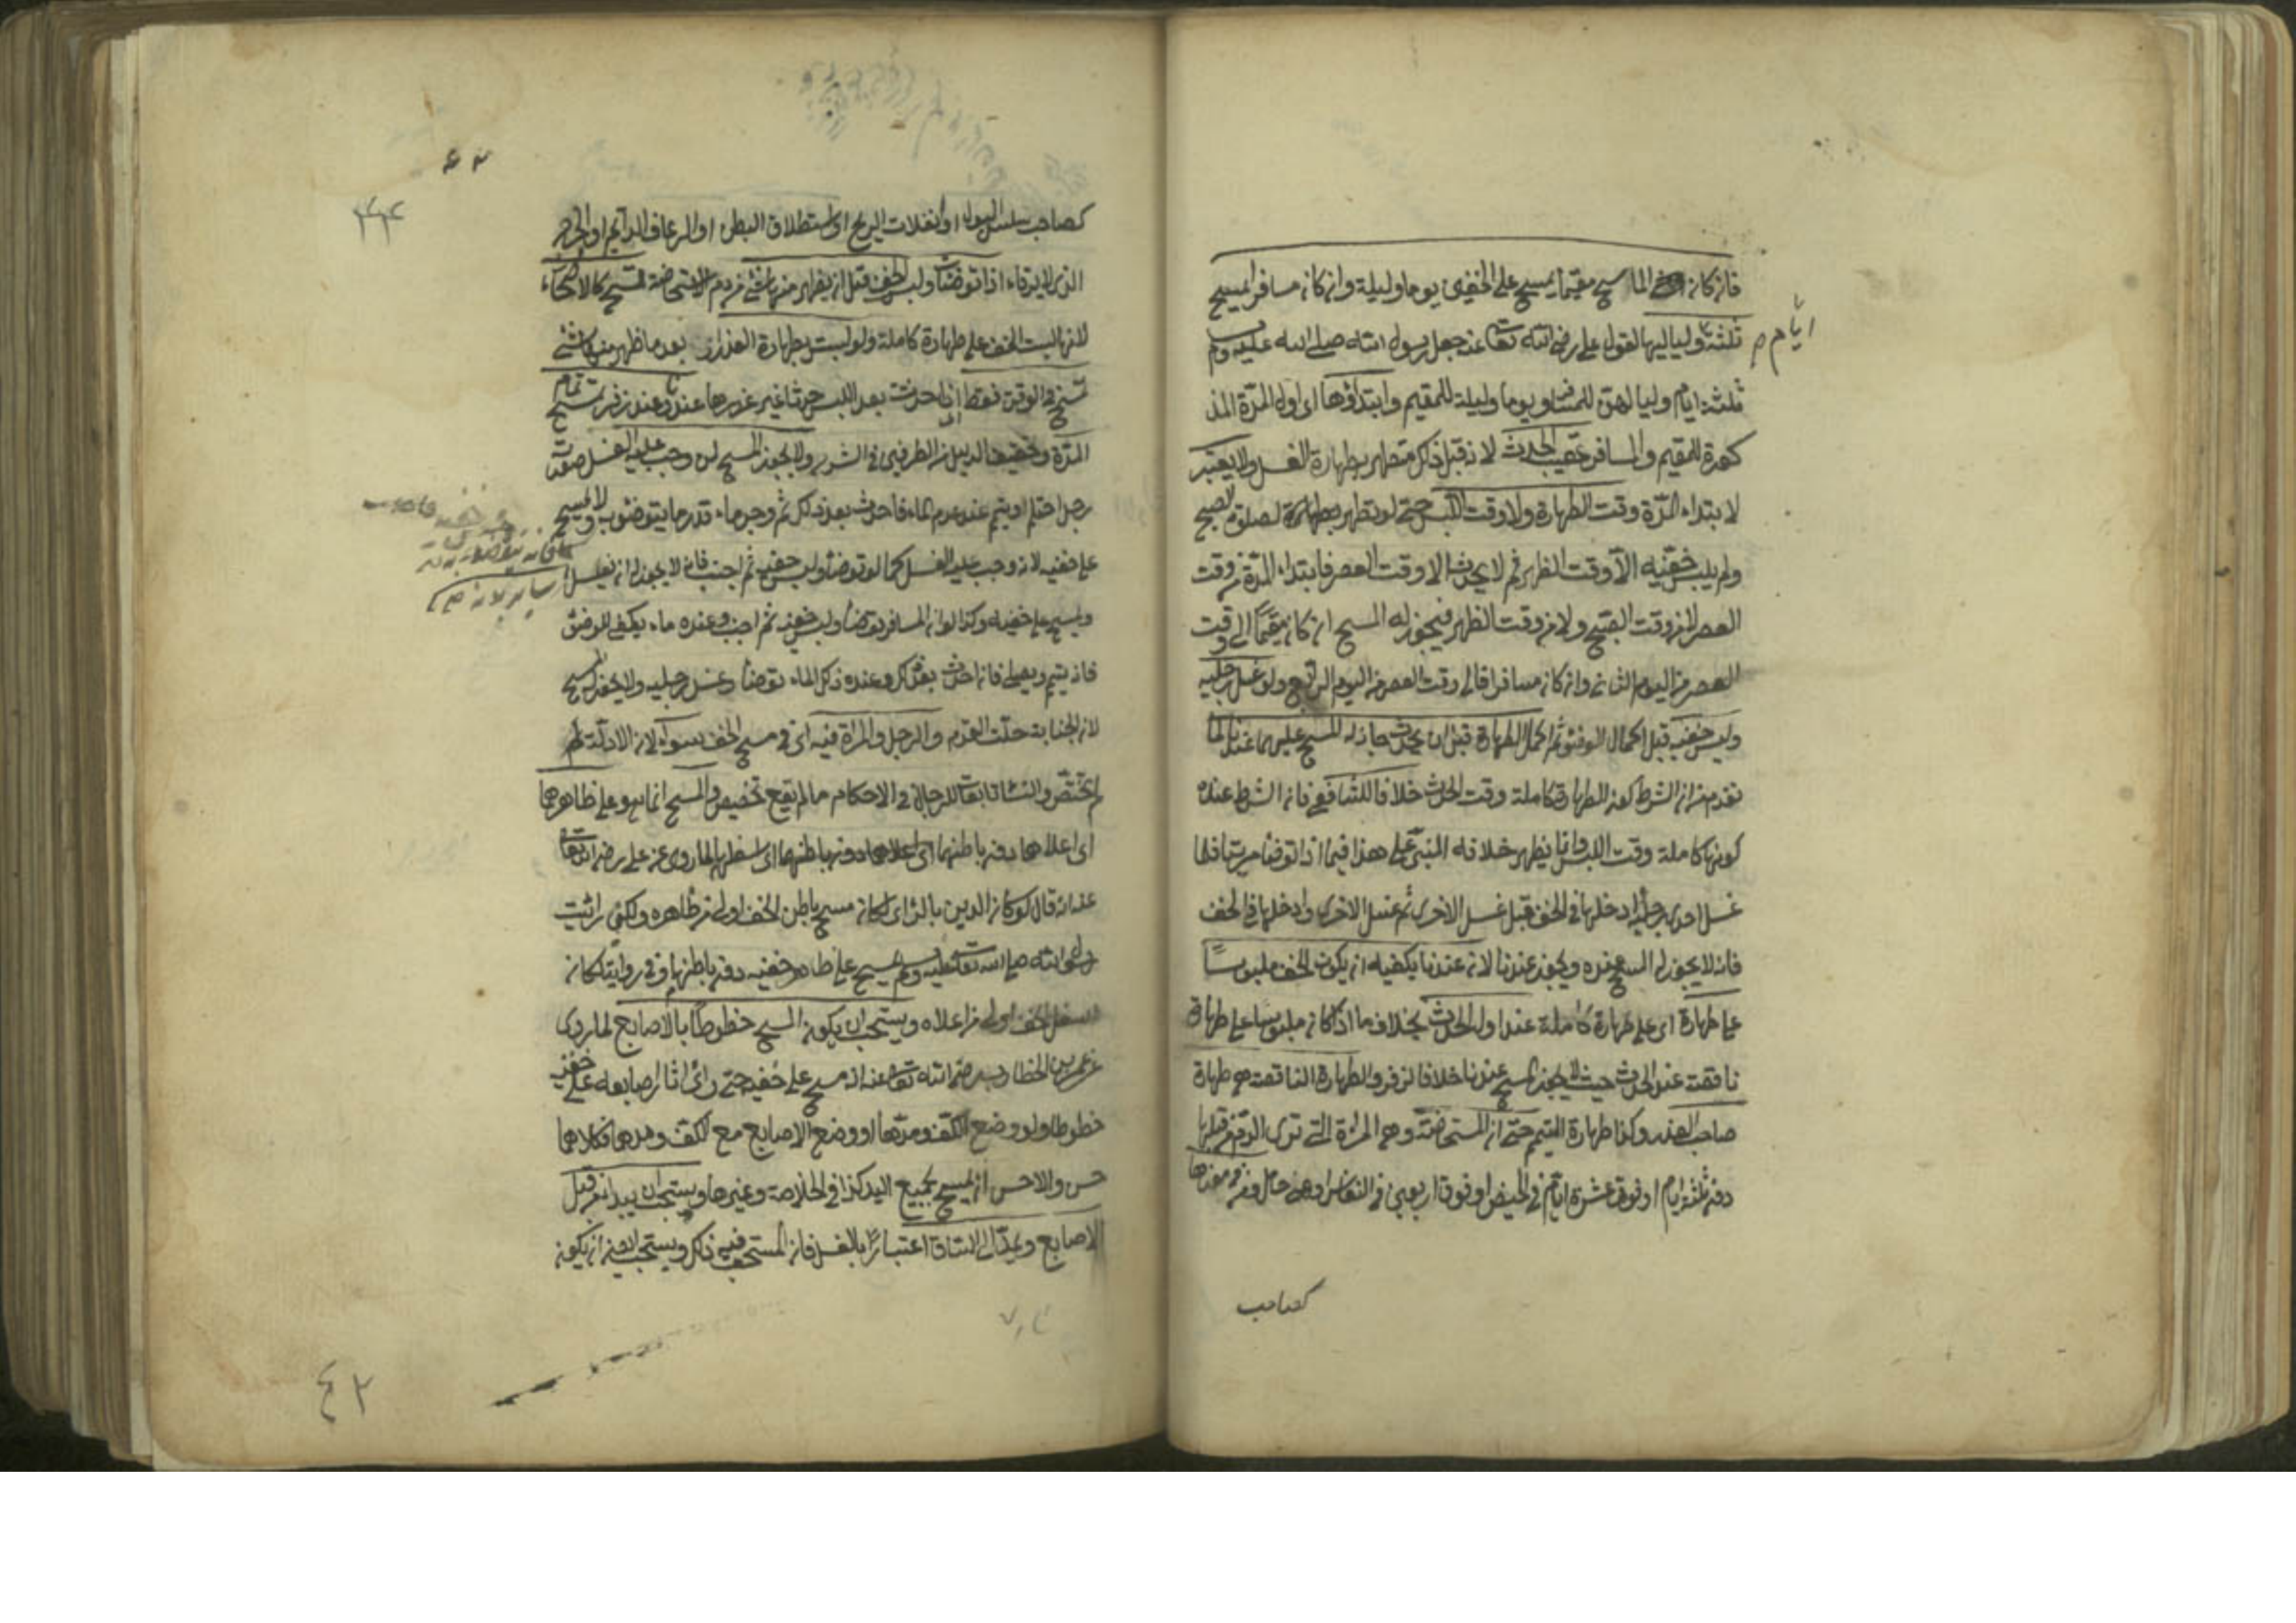 فان كان الماسح مقيما يمسح على الخفين يوما وليلة وان كان مسافرا يمسح
ثلثة ولياليها لقول علي رضي الله تعا عنه جعل رسول الله صلى الله عليه وسلم
ايام صح
ثلثة ايام ولياليهن للمسافر ويوما وليلة للمقيم وابتداؤها اى اول المدة المذ
كورة للمقيم والمسافر عقيب الحدث لانه قبل ذلك متطهر بطهارة الغسل ولا يعتبر
لابتداء المدة وقت الطهارة ولا وقت اللبس حتى لو تطهر لصلوة الصبح
ولم يلبس خفيه الا وقت الظهر ثم لا يحدث الا وقت العصر فابتداء المدة من وقت
العصر لا من وقت الصبح ولا من وقت الظهر فيجوز له المسح ان كان مقيما الى وقت
العصر من اليوم الثاني وان كان مسافرا فالى وقت العصر من اليوم الرابع ولو غسل رجليه
ولبس خفيه قبل اكمال الوضوء ثم اكمل الطهارة قبل ان يحدث جاز له المسح عليهما عندنا لما
تقدم من ان الشرط كون الطهارة كاملة وقت الحدث خلافا للشافعي فان الشرط عنده
كونها كاملة وقت اللبس وانما يظهر خلافه المبني على هذا فيما اذا توضأ مرتبا فلما
غسل احدى رجليه ادخلها في الخف قبل غسل الاخرى ثم غسل الاخرى وادخلها في الخف
فانه لا يجوز له المسح عنده ويجوز عندنا لانه عندنا يكفيه ان يكون الخف ملبوسا
على طهارة اى على طهارة كاملة عند اول الحدث بخلاف ما اذا كان ملبوسا على طهارة
ناقصة عند الحدث حيث لا يجوز المسح عندنا خلافا لزفر والطهارة الناقصة هي طهارة
صاحب العذر وكذا طهارة التيمم حتى ان المستحاضة وهي المرأة التي ترى الدم من قبلها
دون ثلثة ايام او فوق عشرة ايام في الحيض او فوق اربعين في النفاس او هي حامل ومن في معناها
كصاحب
كصاحب سلس البول او انفلات الريح او استطلاق البطن او الرعاف الدائم او الجرح
الذى لا يرقاء اذا توضأت ولبست الخف قبل ان يظهر منها شئ من دم الاستحاضة تمسح كالاصحاء
لانها لبست الخف على طهارة كاملة ولو لبست بطهارة العذر اى بعد ما ظهر منها شئ
تمسح في الوقت فقط اذا احدثت بعد اللبس حدثا غير عذرها عندنا وعند زفر تمسح تمام
المدة وتحقيق الدليل من الطرفين في الشرح ولا يجوز المسح لمن وجب عليه الغسل صورته
رجل احتلم او تيمم عند عدم الماء فاحدث بعد ذلك ثم وجد ماء قدر ما يتوضؤ به لا يمسح
على خفيه لانه وجب عليه الغسل كما لو توضأ ولبس خفيه ثم اجنب فانه لا يجوز له ان يغسل
ويمسح على خفيه وكذا لو ان المسافر توضأ ولبس خفيه ثم اجنب وعنده ماء يكفي للوضوء
فانه يتيمم ويصلي فان احدث بعد ذلك وعنده ذلك الماء توضأ وغسل رجليه ولا يجوز المسح
لان الجنابة حلت القدم والرجل والمرأة فيه اى في مسح الخف سواء لان الادلة لم
تختص والنساء تابعات للرجال في الاحكام ما لم يقع تخصيص والمسح انما هو على ظاهرهما
اى اعلاهما دون باطنهما اى اسفلهما لما روى عن علي رضي الله تعا
عنه انه قال لو كان الدين بالرأى لكان مسح باطن الخف اولى من ظاهره ولكني رأيت
رسول الله صلى الله تعا عليه وسلم يمسح على ظاهر خفيه دون باطنهما وفي رواية لكان
اسفل الخف اولى من اعلاه ويستحب ان يكون المسح خطوطا بالاصابع لما روى
عن عمر بن الخطاب رضي الله تعا عنه انه مسح على خفيه حتى رأى اثار اصابعه على خفيه
خطوطا ولو وضع الكف ومدها او وضع الاصابع مع الكف ومدها فكلاهما
حسن والاحسن ان يمسح بجميع اليد كذا في الخلاصة وغيرها ويستحب ان يبدأ من قبل
الاصابع ويمد الى الساق اعتبارا بالغسل فان المستحب فيه ذلك ويستحب ان يكون
٤٢